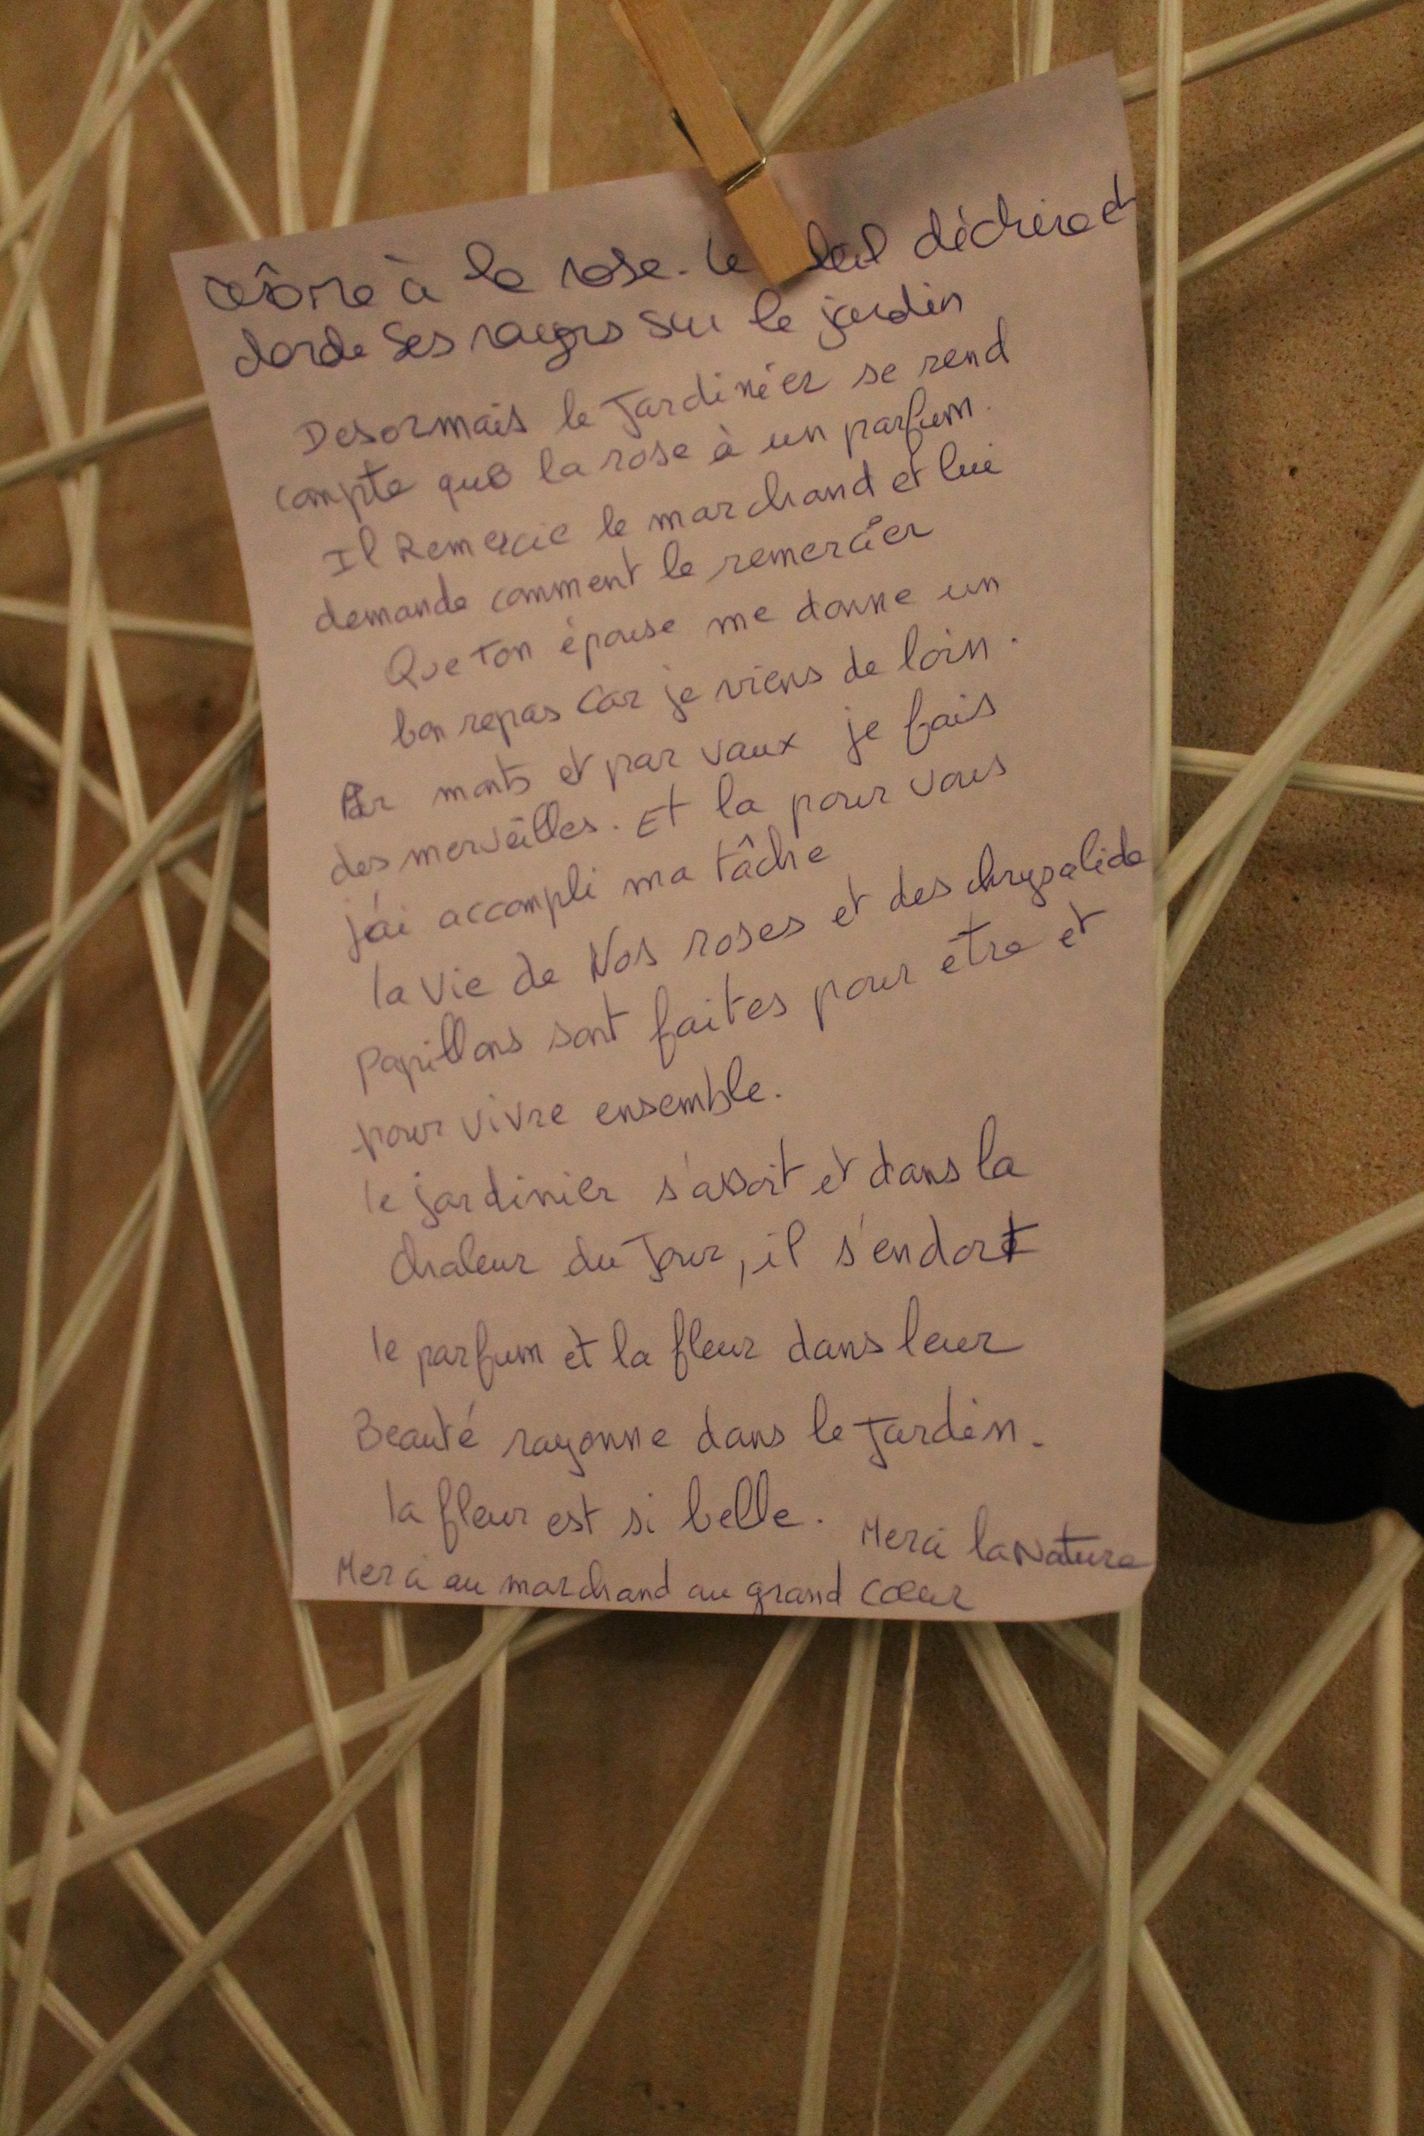 à la rose. Le déchire et
darde ses rayons sur le jardin
Desormais le Jardinier se rend
compte que la rose à un parfum.
Il Remercie le marchand et lui
demande comment le remercier
Que ton épouse me donne un
bon repas car je viens de loin.
Par monts et par vaux je fais
des merveilles. Et la pour vous
j'ai accompli ma tâche
la vie de Nos roses et des chrysalide
papillons sont faites pour être et
pour vivre ensemble.
le jardinier s'assoit et dans la
chaleur du Jour, il s'endort
le parfum et la fleur dans leur
Beauté rayonne dans le Jardin.
la fleur est si belle. Merci la Nature
Merci au marchand au grand cœur